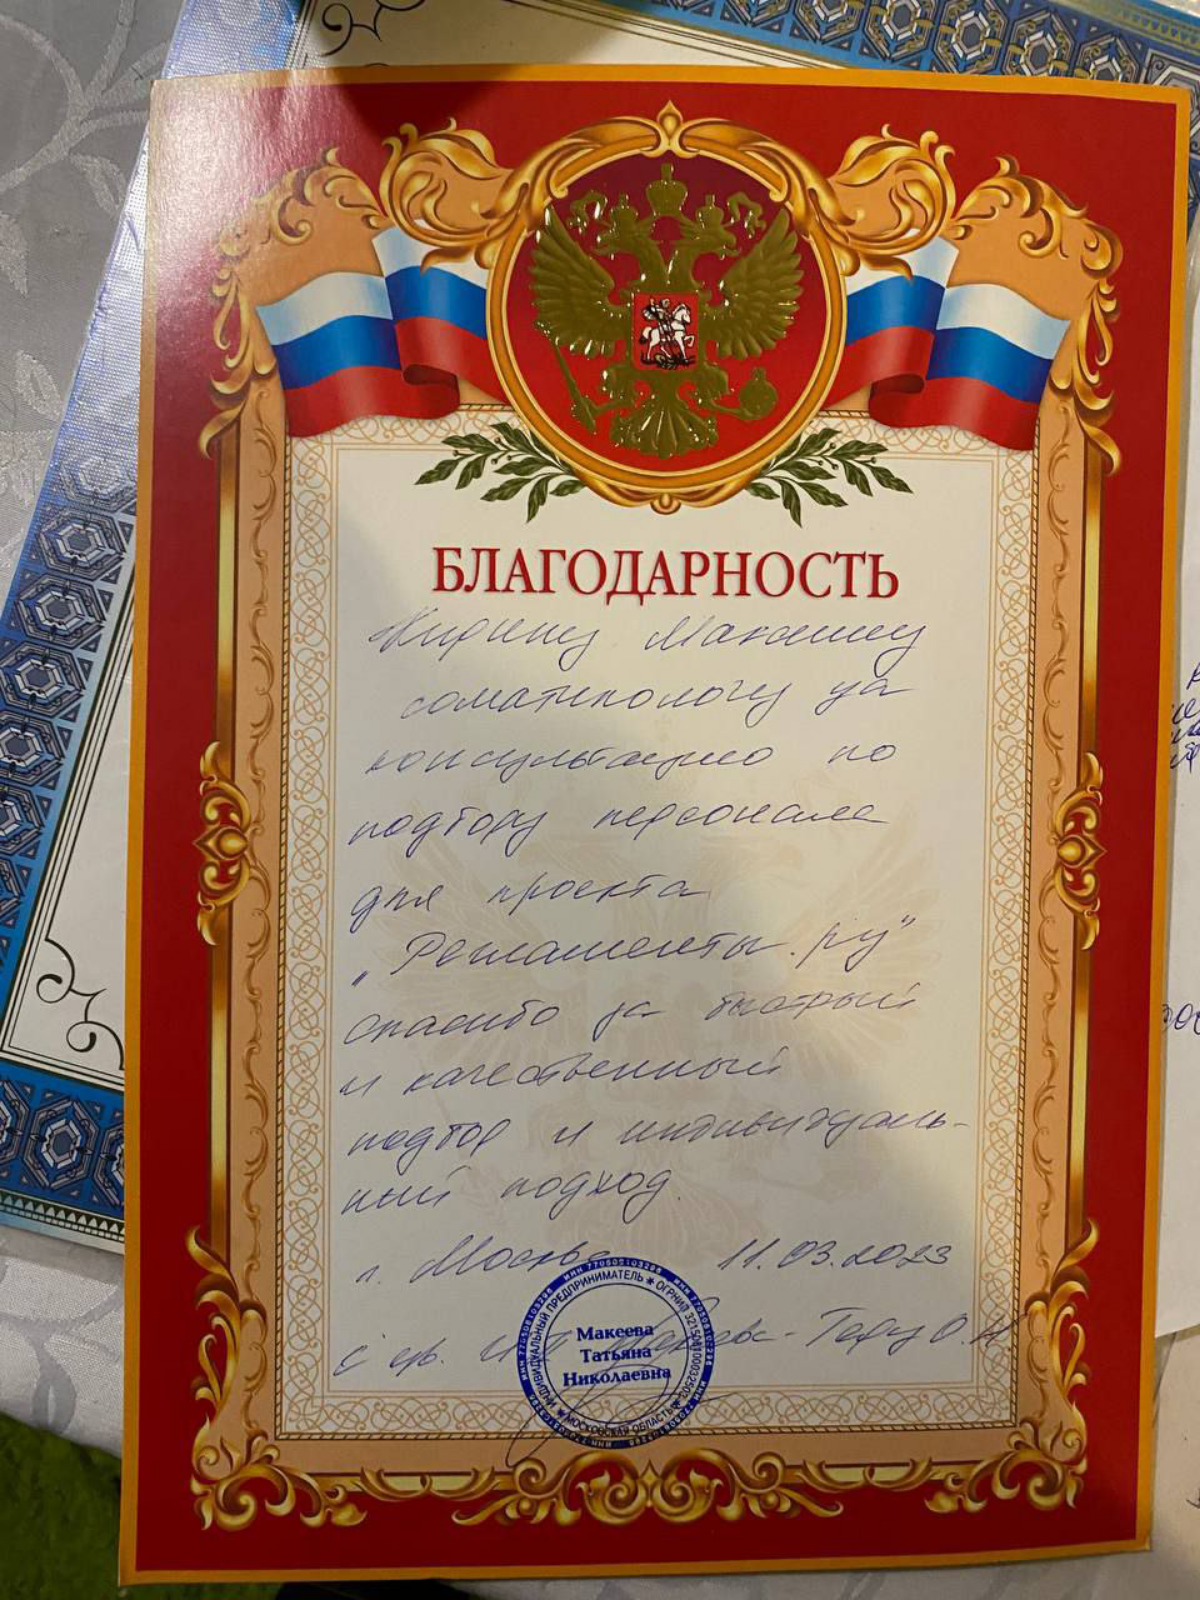 БЛАГОДАРНОСТЬ
Кирину Максиму
соматипологу за
консультацию по
подбору персонала
для проекта
„Регламенты.ру"
спасибо за быстрый
и качественный
подбор и индивидуаль-
ный подход.
г. Москва 11.03.2023
с ув. ИП
ИНДИВИДУАЛЬНЫЙ ПРЕДПРИНИМАТЕЛЬ
МОСКОВСКАЯ ОБЛАСТЬ
Макеева
Татьяна
Николаевна